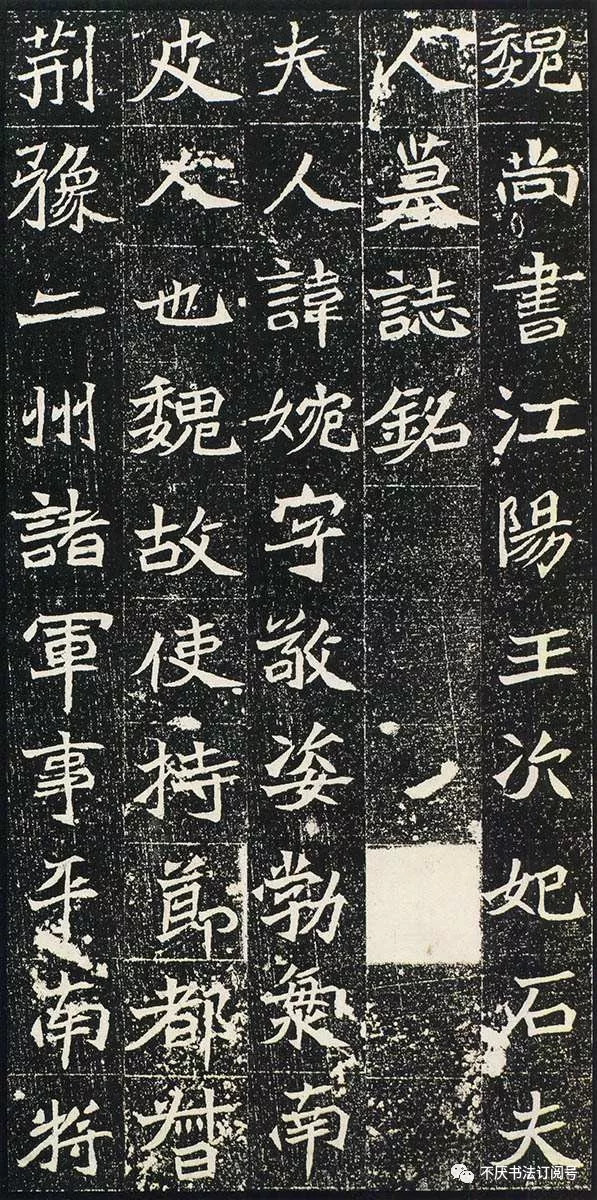 魏尚書江陽王次妃石夫
人墓誌銘
夫人諱婉字敬姿勃海南
皮人也魏故使持節都督
荆豫二州諸軍事平南將
不厌书法订阅号